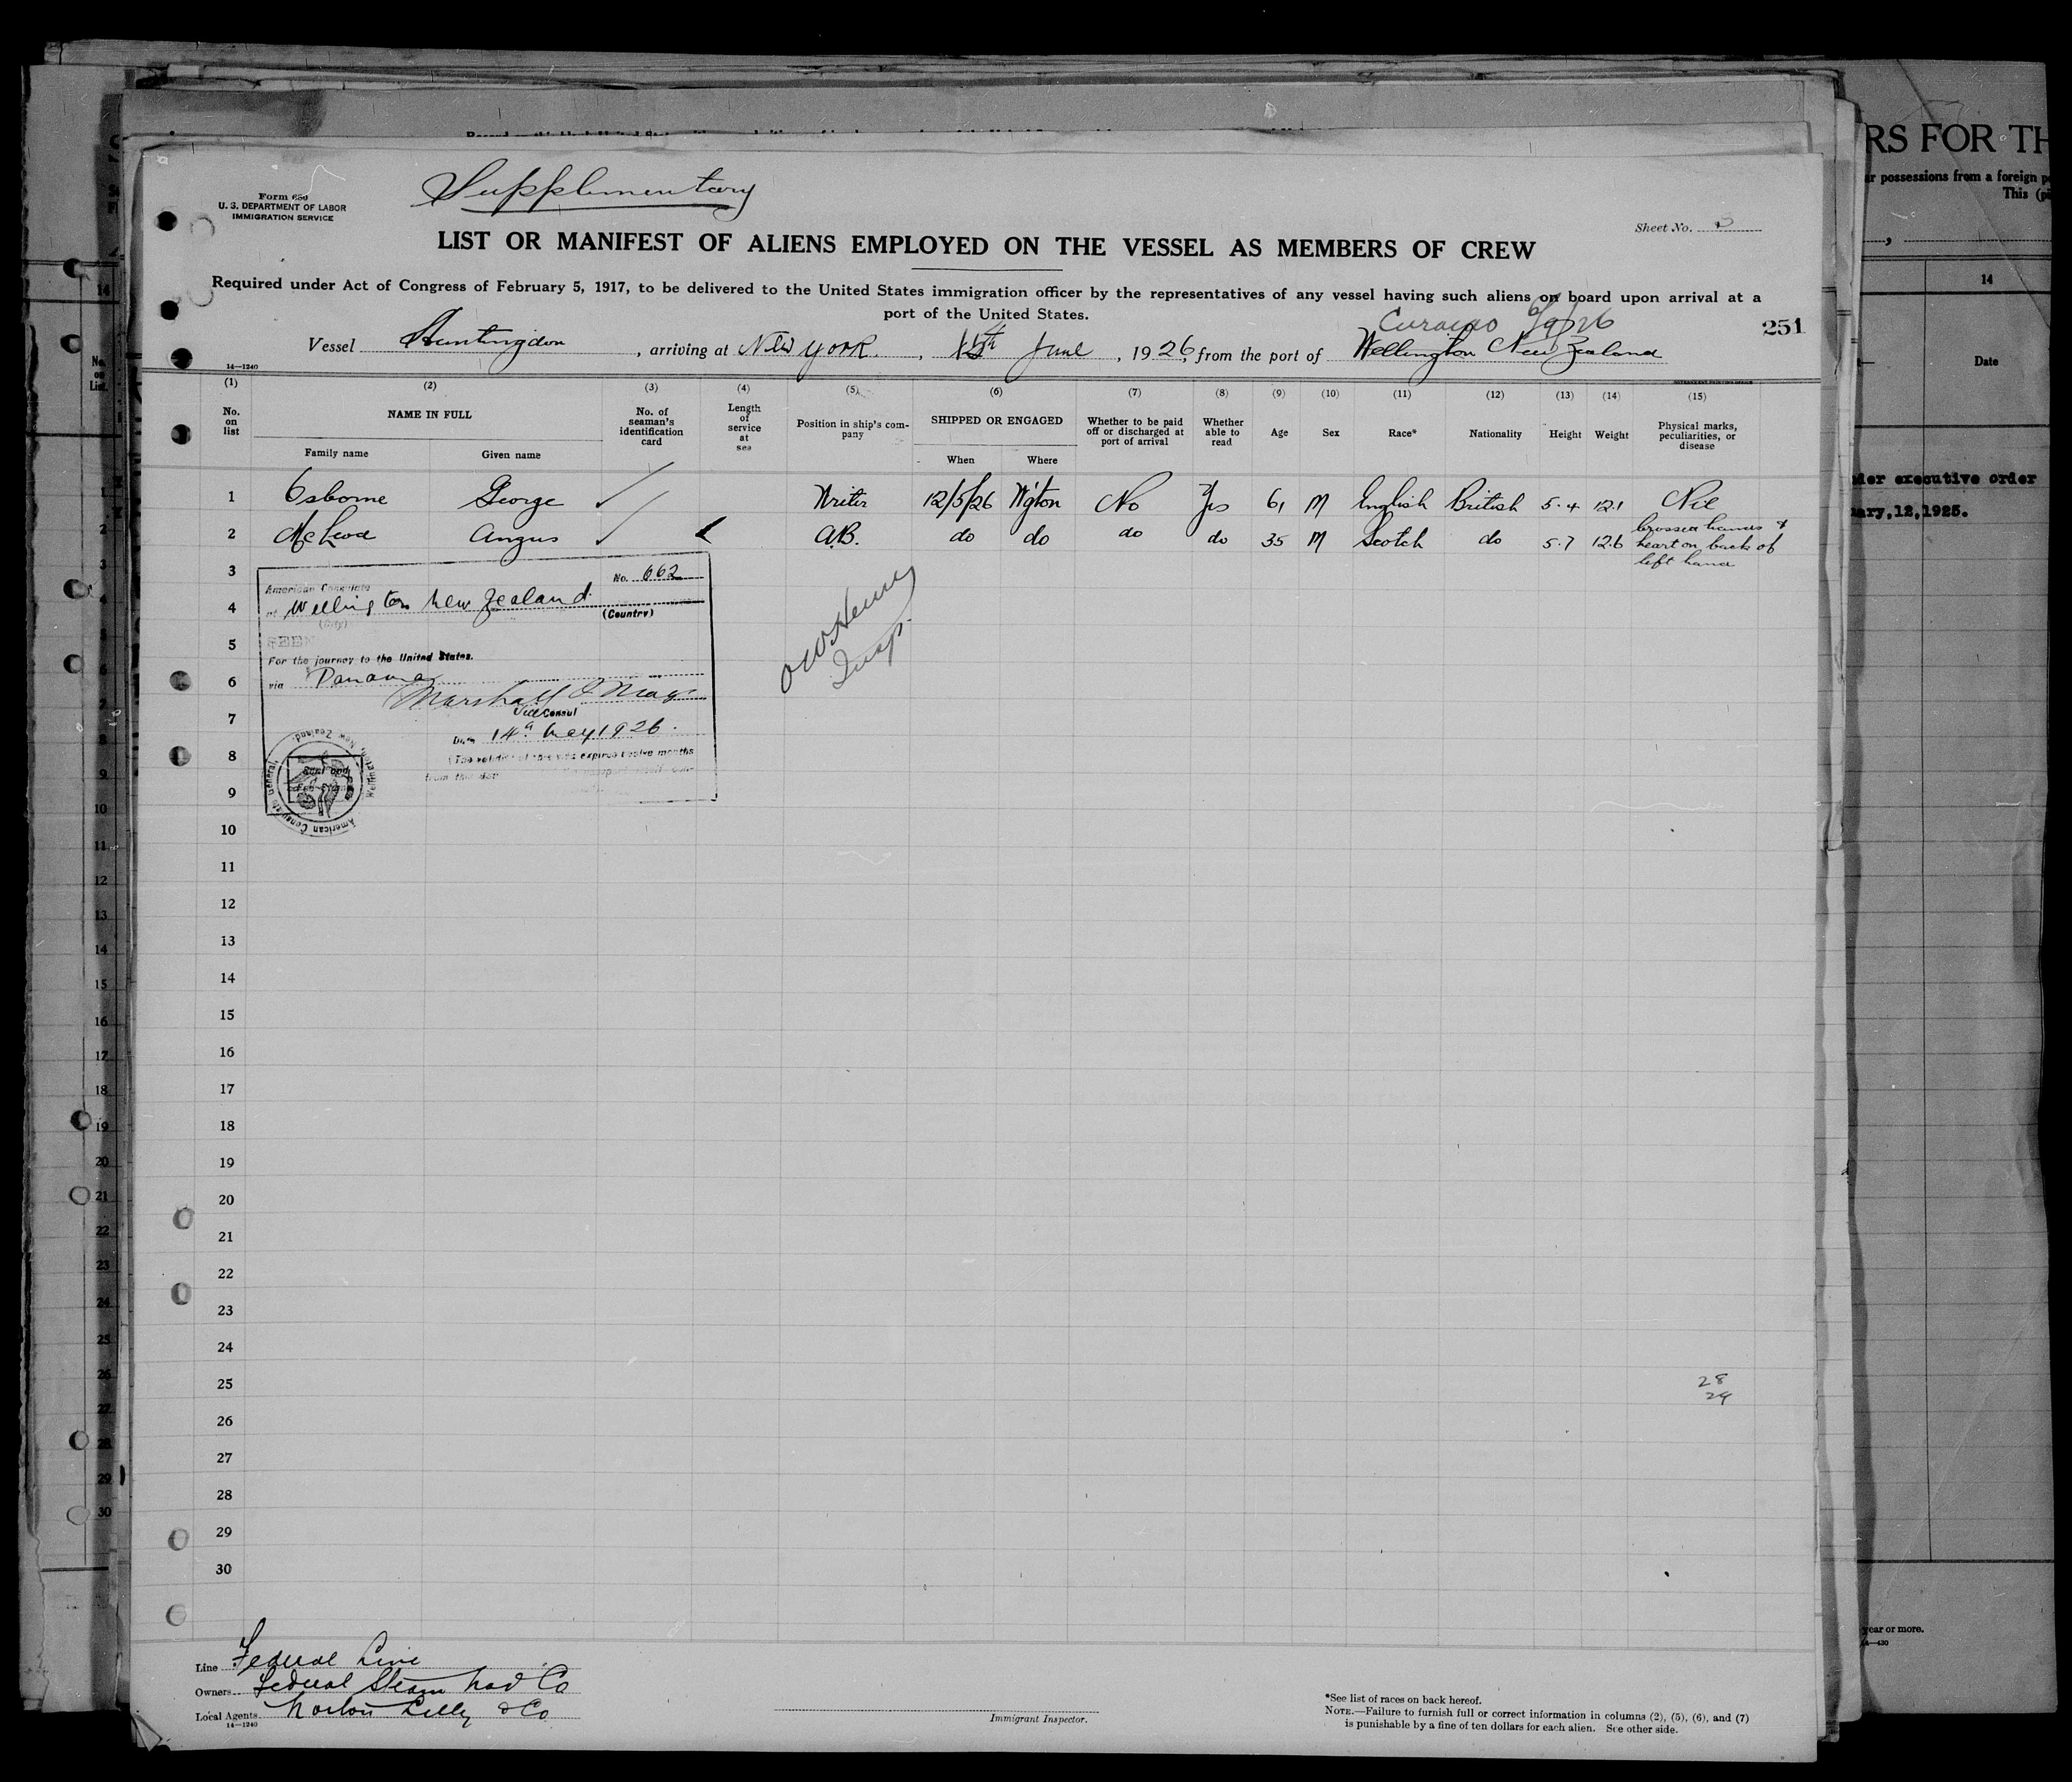 Form 680
U. S. DEPARTMENT OF LABOR
IMMIGRATION SERVICE
Supplementary
Sheet No.
LIST OR MANIFEST OF ALIENS EMPLOYED ON THE VESSEL AS MEMBERS OF CREW
Required under Act of Congress of February 5, 1917, to be delivered to the United States immigration officer by the representatives of any vessel having such aliens on board upon arrival at a
port of the United States.
Curacao 6/9/26
251
Vessel Huntingdon, arriving at New York, June, 1926, from the port of Wellington New Zealand
14—1240
(1) (2) (3) (4) (5) (6) (7) (8) (9) (10) (11) (12) (13) (14) (15)
No. on list
NAME IN FULL
Family name
Given name
No. of seaman's identification card
Length of service at sea
Position in ship's company
SHIPPED OR ENGAGED
When
Where
Whether to be paid off or discharged at port of arrival
Whether able to read
Age
Sex
Race*
Nationality
Height
Weight
Physical marks, peculiarities, or disease
1 Osborne George Writer 12/5/26 W'gton No Yes 61 M English British 5.4 12.1 Nil
2 McLeod Angus A.B. do do do do 35 M Scotch do 5.7 12.6 Crossed hands & heart on back of left hand
3
4
5
6
7
8
9
10
11
12
13
14
15
16
17
18
19
20
21
22
23
24
25
26
27
28
29
30
American Consulate
No. 662
at Wellington New Zealand
(City)
(Country)
SEEN
For the journey to the United States.
via Panama
Marshall
Vice Consul
Date 14th May 1926.
(The validity of this visa expires twelve months
from this date
American Consulate General, Wellington, New Zealand.
Henry
Insp.
28
29
Line Federal Line
Owners Federal Steam Nav Co
Local Agents Norton Lilly & Co
14—1240
Immigrant Inspector.
*See list of races on back hereof.
NOTE.—Failure to furnish full or correct information in columns (2), (5), (6), and (7)
is punishable by a fine of ten dollars for each alien. See other side.
RS FOR TH
possessions from a foreign
This
14
Date
executive order
12, 1925.
year or more.
14—430